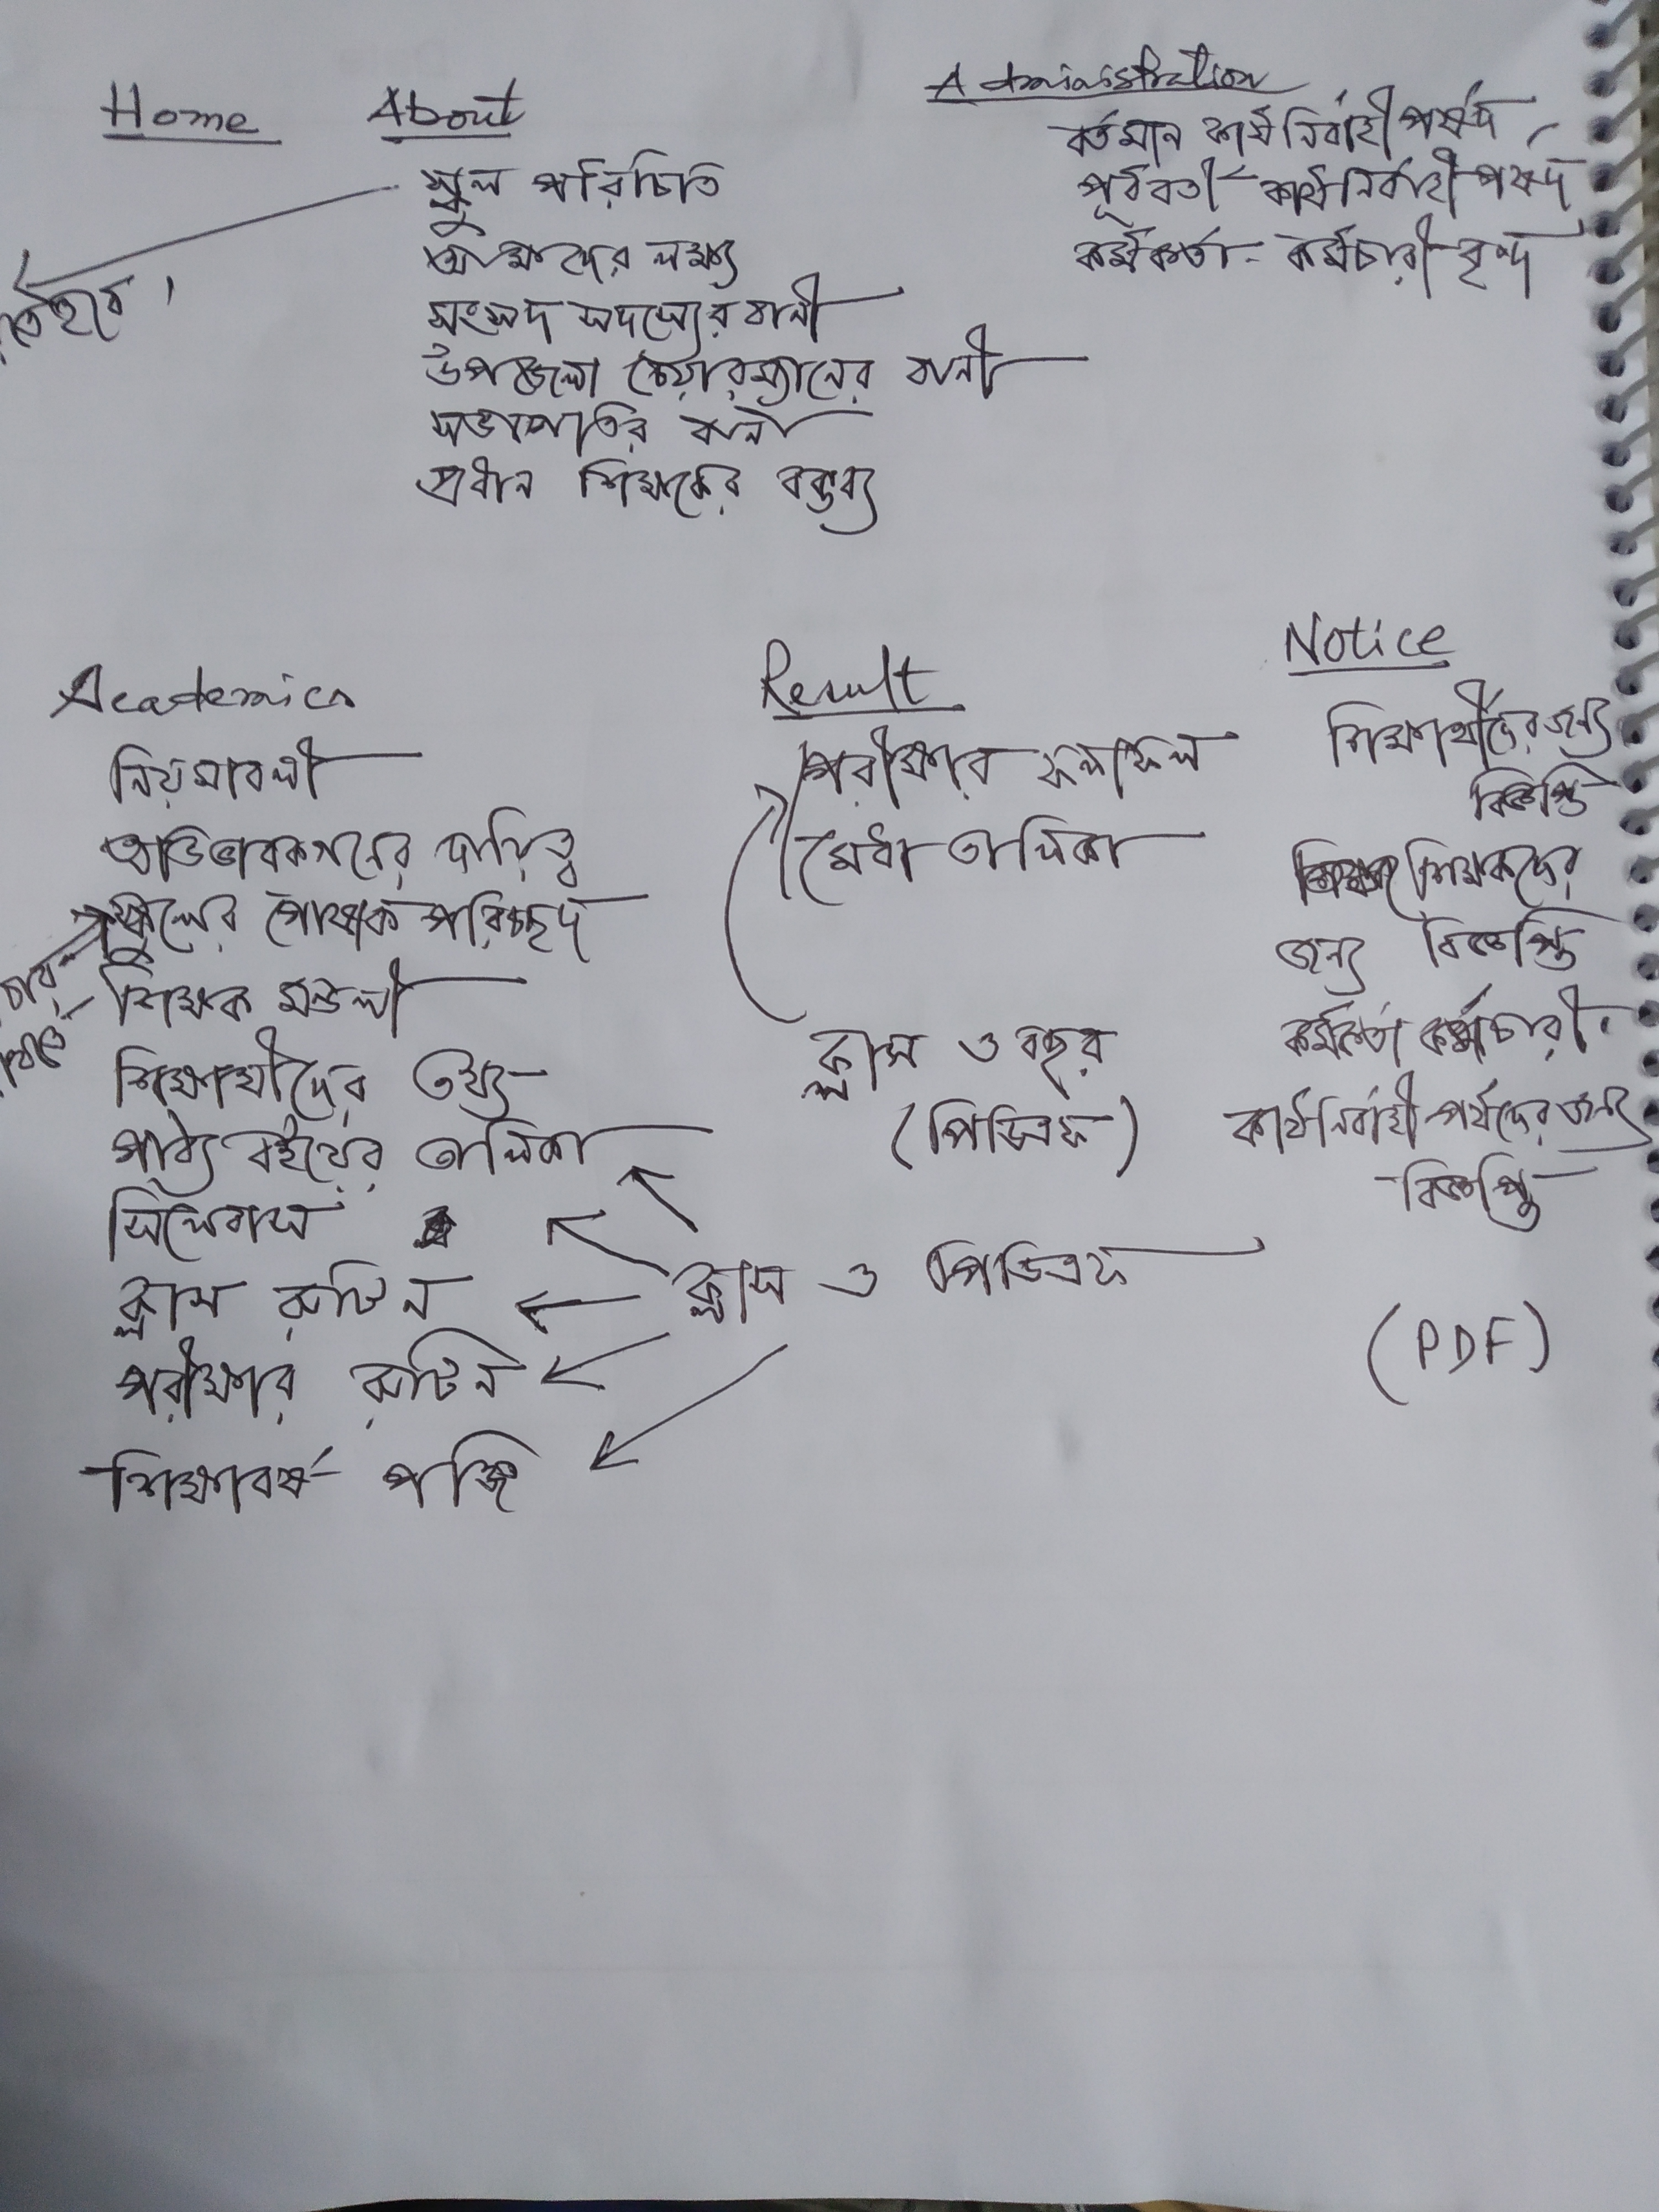 Home
About
স্কুল পরিচিতি
আমাদের লক্ষ্য
সংসদ সদস্যের বানী
উপজেলা চেয়ারম্যানের বানী
সভাপতির বানী
প্রধান শিক্ষকের বক্তব্য
Administration
বর্তমান কার্যনির্বাহী পর্ষদ
পূর্ববর্তী কার্যনির্বাহী পর্ষদ
কর্মকর্তা- কর্মচারী বৃন্দ
Academics
নিয়মাবলী
অভিভাবকগনের দায়িত্ব
স্কুলের পোষাক পরিচ্ছদ
শিক্ষক মন্ডলী
শিক্ষার্থীদের তথ্য
পাঠ্য বইয়ের তালিকা
সিলেবাস
ক্লাস রুটিন
পরীক্ষার রুটিন
শিক্ষাবর্ষ পঞ্জি
ক্লাস ও পিডিএফ
Result
পরীক্ষার ফলাফল
মেধা তালিকা
ক্লাস ও বছর
(পিডিএফ)
Notice
শিক্ষার্থীদের জন্য
বিজ্ঞপ্তি
শিক্ষকদের
জন্য বিজ্ঞপ্তি
কর্মকর্তা কর্মচারী
কার্যনির্বাহী পর্ষদের জন্য
বিজ্ঞপ্তি
(PDF)